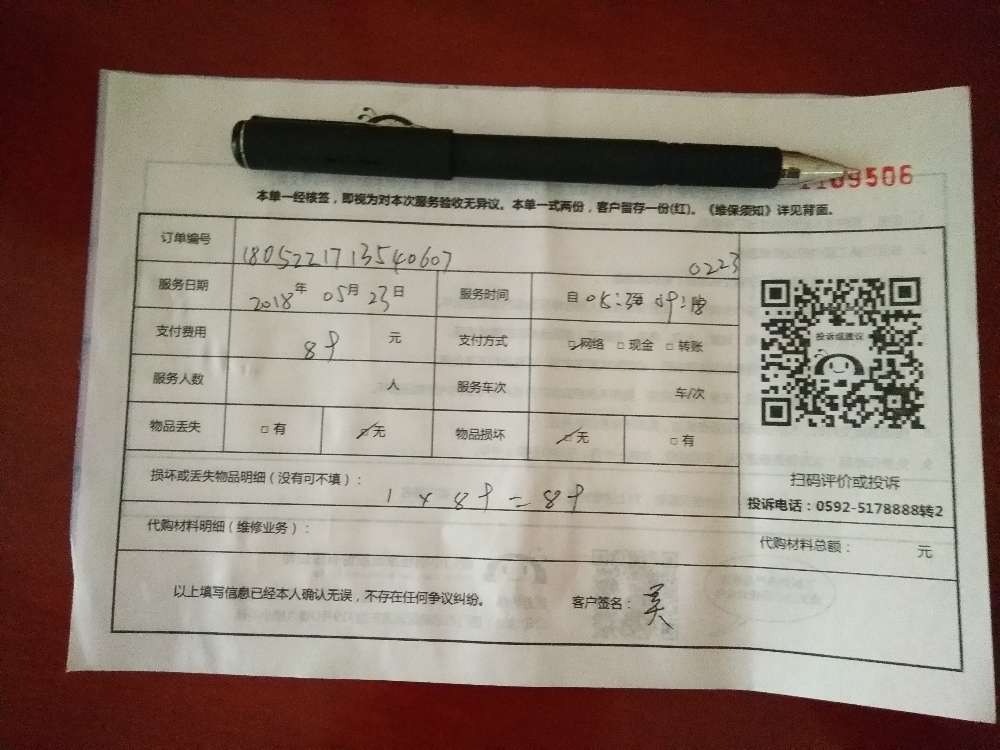 09506
本单一经核签，即视为对本次服务验收无异议。本单一式两份，客户留存一份(红)。《维保须知》详见背面。
订单编号 180522171354060 7 0223
服务日期 2018年 05月 23日 服务时间 自
支付费用 元 支付方式 □网络 □现金 □转账
投诉或建议
服务人数 人 服务车次 车/次
物品丢失 □有 □无 物品损坏 □无 □有
扫码评价或投诉
损坏或丢失物品明细（没有可不填）：
投诉电话：0592-5178888转2
代购材料明细（维修业务）： 代购材料总额： 元
以上填写信息已经本人确认无误，不存在任何争议纠纷。 客户签名：